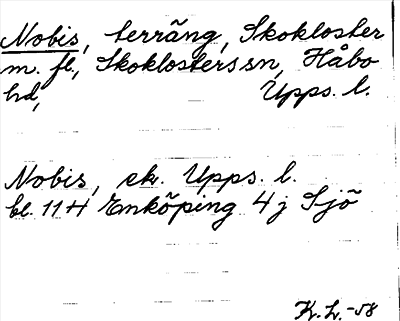 Nobis, terräng, Skokloster
m. fl., Skoklosters sn, Håbo
hd, Upps. l.
Nobis, ek. Upps. l.
bl. 11 H Enköping 4 j Sjö
K. L. -58